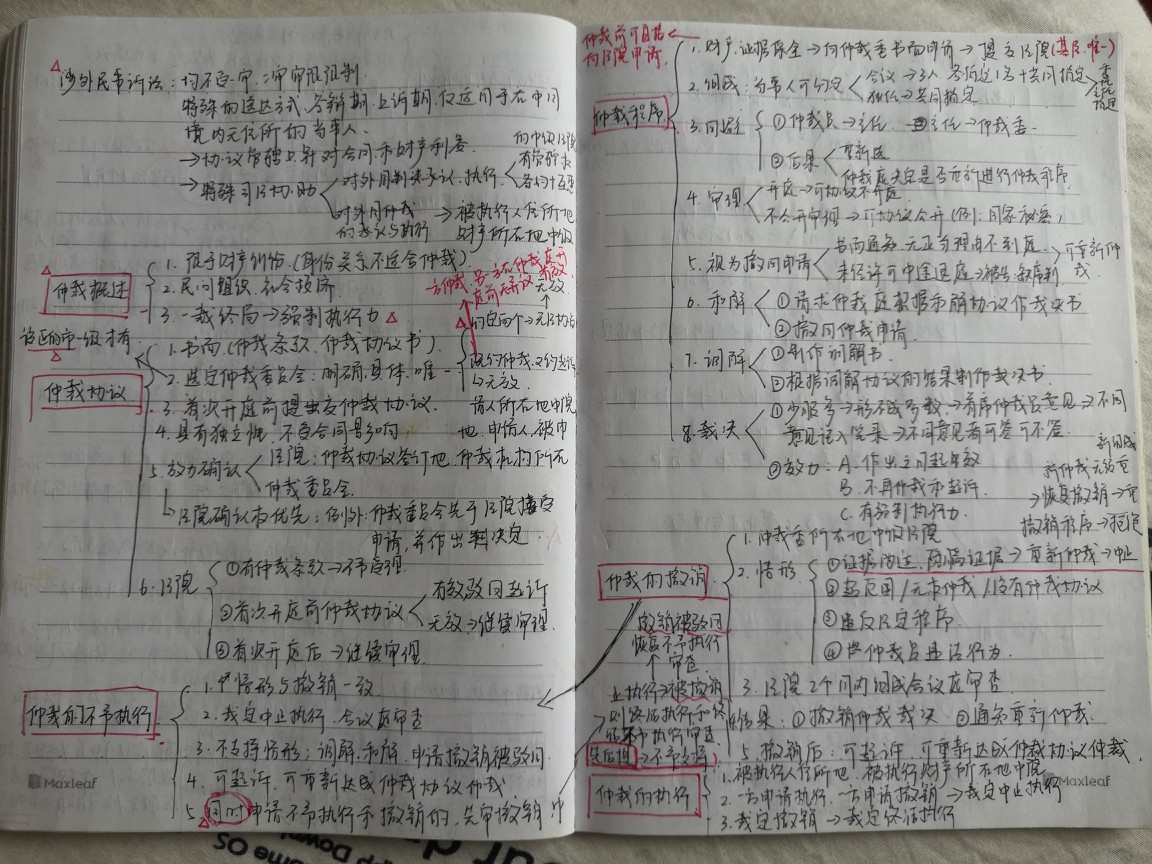 涉外民事诉讼：均不受一审、二审审限限制.
特殊的送达方式、答辩期、上诉期,仅适用于在中国
境内无住所的当事人.
→协议管辖只针对合同和财产利益
→特殊司法协助
对外国判决承认、执行
对外国仲裁
的承认与执行
→被执行人住所地
财产所在地中级
仲裁概述
1. 限于财产纠纷.(身份关系不适合仲裁).
2. 民间组织,社会救济
3. 一裁终局→强制执行力
设区的市一级才有
仲裁协议
1. 书面.(仲裁条款、仲裁协议书).
2. 选定仲裁委员会：明确、具体、唯一
既约仲裁,又约起诉
→无效.
3. 首次开庭前提出仲裁协议.
4. 具有独立性,不受合同影响
5. 效力确认
法院：仲裁协议签订地、仲裁机构所在
地、申请人、被申
请人所在地中院
仲裁委员会.
法院确认权优先；例外：仲裁委员会先于法院接受
申请,并作出决定
6. 法院
①有仲裁条款→不予受理.
②首次开庭前仲裁协议
有效驳回起诉
无效→继续审理.
③首次开庭后→继续审理.
仲裁的不予执行
1. 情形与撤销一致
2. 裁定中止执行,合议庭审查
3. 不支持情形：调解、和解、申请撤销被驳回
4. 可起诉,可重新达成仲裁协议仲裁.
5. 同时申请不予执行和撤销的,先审撤销
Maxleaf
仲裁前可直接
向法院申请
仲裁程序
1. 财产、证据保全→向仲裁委书面申请→提交法院(基层、唯一)
2. 组成：当事人可约定
合议→3人,各自选1名+共同指定
独任→共同指定
3. 回避
①仲裁员→主任 主任→仲裁委.
②后果
重新选
仲裁庭决定是否重新进行仲裁程序.
4. 审理
开庭→可协议不开庭.
不公开审理→可协议公开(例：国家秘密)
5. 视为撤回申请
书面通知,无正当理由不到庭
未经许可中途退庭→被告:缺席判
可重新仲
裁.
6. 和解
①请求仲裁庭根据和解协议作裁决书
②撤回仲裁申请
7. 调解
①制作调解书.
②根据调解协议的结果制作裁决书.
8. 裁决
①少服多→形不成多数→首席仲裁员意见→不同
意见记入笔录→不同意见者可签可不签.
②效力：A. 作出之日起生效
B. 不再仲裁和起诉.
C. 有强制执行力.
仲裁的撤销
1. 仲裁委所在地中级法院
2. 情形
①证据伪造、隐瞒证据→重新仲裁→中止
撤销程序→拒绝
→恢复撤销
②超范围/无权仲裁/没有仲裁协议
③违反法定程序.
④仲裁员违法行为.
3. 法院2个月内组成合议庭审查.
4. 结果：①撤销仲裁裁决 ②通知重新仲裁.
5. 撤销后：可起诉,可重新达成仲裁协议仲裁.
撤销被驳回
恢复不予执行
审查
仲裁的执行
1. 被执行人住所地、被执行财产所在地中院
2. 一方申请执行,一方申请撤销→裁定中止执行
3. 裁定撤销→裁定终结执行
Maxleaf